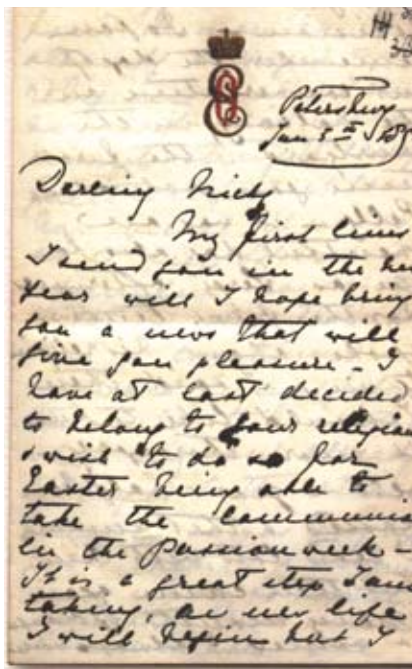 Petersburg
Jan 5th 189
Darling Nicky
My first lines
I send you in the new
year will I hope bring
you a news that will
give you pleasure - I
have at last decided
to belong to your religion
& wish to do so for
Easter being able to
take the communion
in the passion week -
It is a great step I am
taking, as new life
I will begin but I